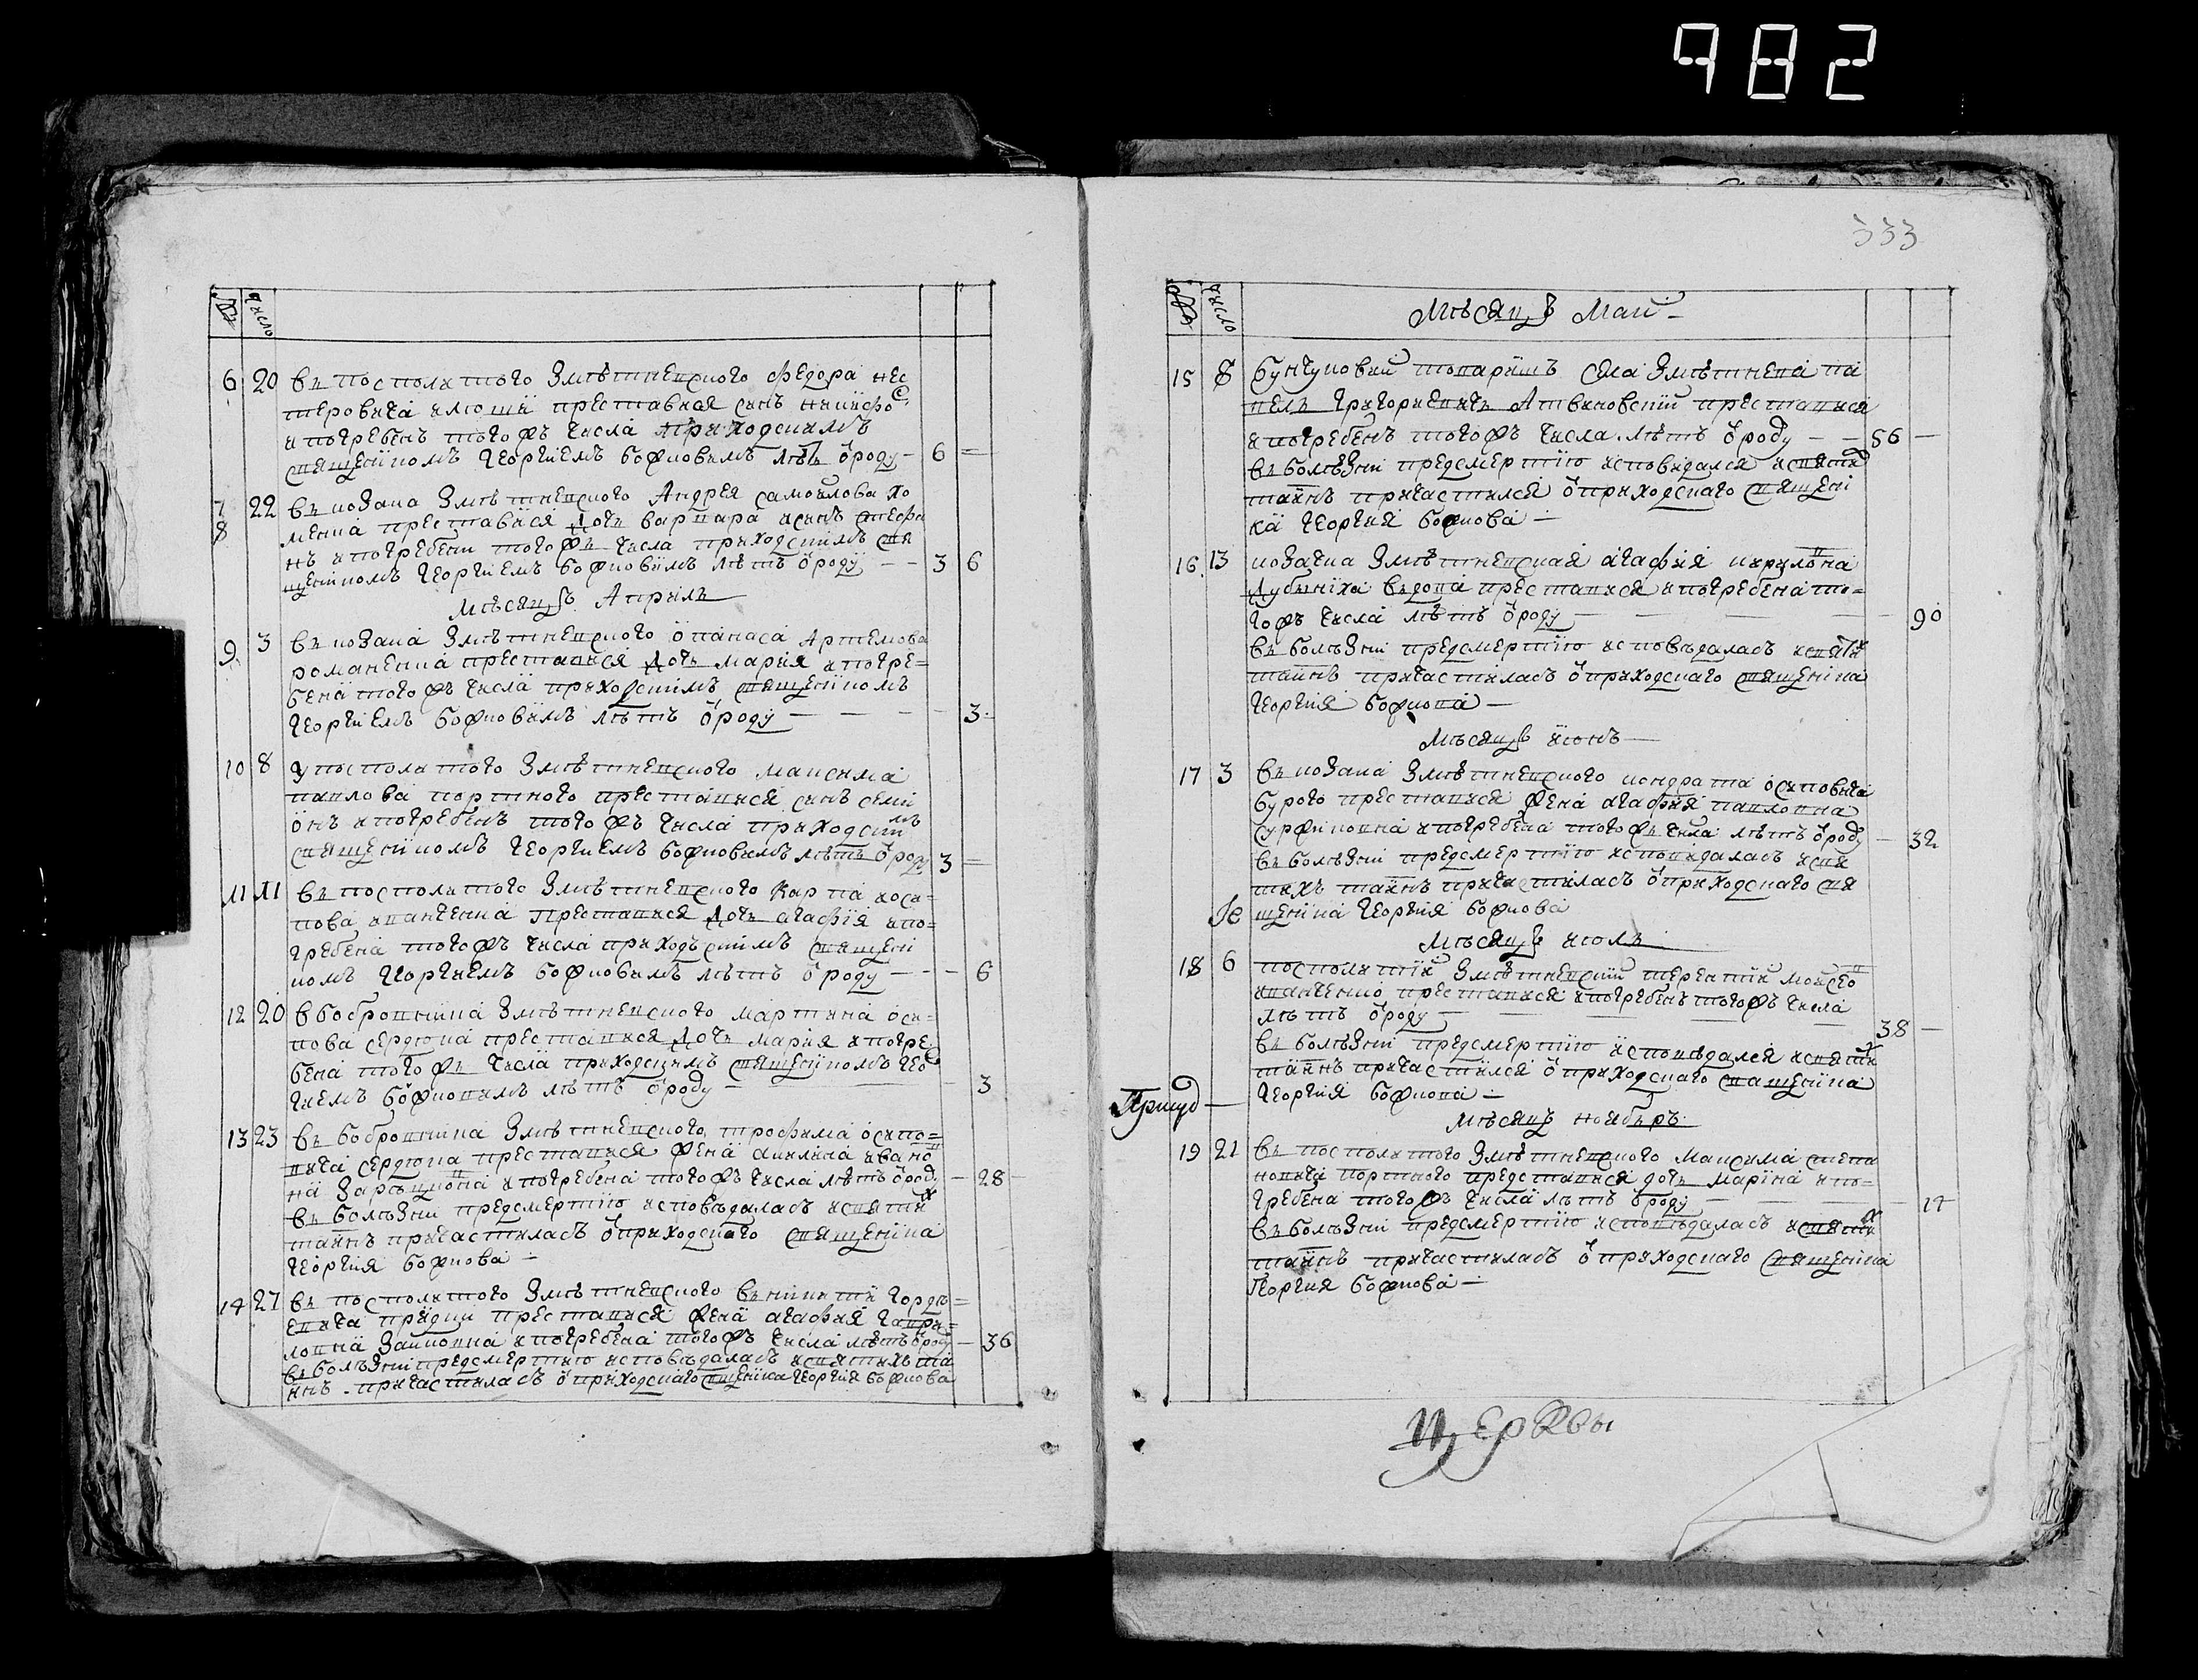 982
333
№ число
6 20 въ посполитого Змѣтневского Федора нес
теровича илюши преставися синъ никифо
и погребенъ того жъ числа приходскимъ
священикомъ Георгиемъ божковымъ лѣтъ ѿроду 6
7 22 въ козака Змѣтневского Андрея самойлова хо
8 менка преставися дочъ варвара и синъ стефа
нъ и погребени того жъ числа приходскимъ свя
щеникомъ Георгиемъ божковимъ лѣтъ ѿроду 3 6
Мѣсяцъ Априль
9 3 въ козака Змѣтневского опанаса Артемова
романенка преставися дочъ мария и погре=
бена того жъ числа приходскимъ священикомъ
Георгиемъ божковимъ лѣтъ ѿроду 3
10 8 у посполитого Змѣтневского максима
павлова портного преставися синъ семи
онъ и погребенъ того жъ числа приходскимъ
священикомъ Георгиемъ божковымъ лѣтъ ѿроду 3
11 11 въ посполитого Змѣтневского Карпа иоси=
пова иванченка преставися дочъ агафия и по=
гребена того жъ числа приходъскимъ священи
комъ Георгиемъ божковымъ лѣтъ ѿроду 6
12 20 в бобровника Змѣтневского мартина оси=
пова сердюка преставися дочъ мария и погре
бена того жъ числа приходскимъ священикомъ Гео
гиемъ божковымъ лѣтъ ѿроду 3
13 23 въ бобровника Змѣтневского трофима осипо=
вича сердюка преставися жена акилина ивано
на и погребена того жъ числа лѣтъ ѿроду 28
въ болѣзни предсмертною исповѣдалась и святих
таинъ причастилась ѿ приходского священика
Георгия божкова
14 27 въ посполитого Змѣтневского Гордѣ=
евича преставися жена агафия Гаври=
ловна и погребена того жъ числа лѣтъ ѿроду 36
въ болѣзни предсмертною исповѣдалась и святихъ та
инъ причастилась ѿ приходского священика Георгия божкова
№ число Мѣсяцъ Маий
15 8 бунчуковий товаришъ села Змѣтнева па
велъ Григориевичъ преставися
и погребенъ того жъ числа лѣтъ ѿроду 56
въ болѣзни предсмертною исповидался и святих
таинъ причастился ѿ приходского священи
ка Георгия божкова
16 13 козачка Змѣтневская агафия кирилона
дубыниха въдова преставися и погребена то=
гожъ числа лѣтъ ѿроду 90
въ болѣзни предсмертною исповѣдалась и святих
таинъ причастилась ѿ приходского священика
Георгия божкова
Мѣсяцъ июнъ
17 3 въ козака Змѣтневского кондрата осиповича
бурого преставися жена агафия павловна
и погребена того жъ числа лѣтъ ѿроду 32
въ болѣзни предсмертною исповидалась и свя
тихъ таинъ причастилась ѿ приходского свя
Іе щеника Георгия божкова
Мѣсяцъ июль
18 6 посполитий Змѣтневский терентий моисео
иванченко преставися и погребенъ того жъ числа
лѣтъ ѿроду 38
въ болѣзни предсмертною исповѣдался и святих
таинъ причастился ѿ приходского священика
Георгия божкова
Мѣсяцъ ноябръ
19 21 въ посполитого Змѣтневского Максима степа
новича портного представися дочъ марина и по=
гребена того жъ числа лѣтъ ѿроду 17
въ болѣзни предсмертною исповѣдалась и святих
таинъ причастилась ѿ приходского священика
Георгия божкова
Церкви